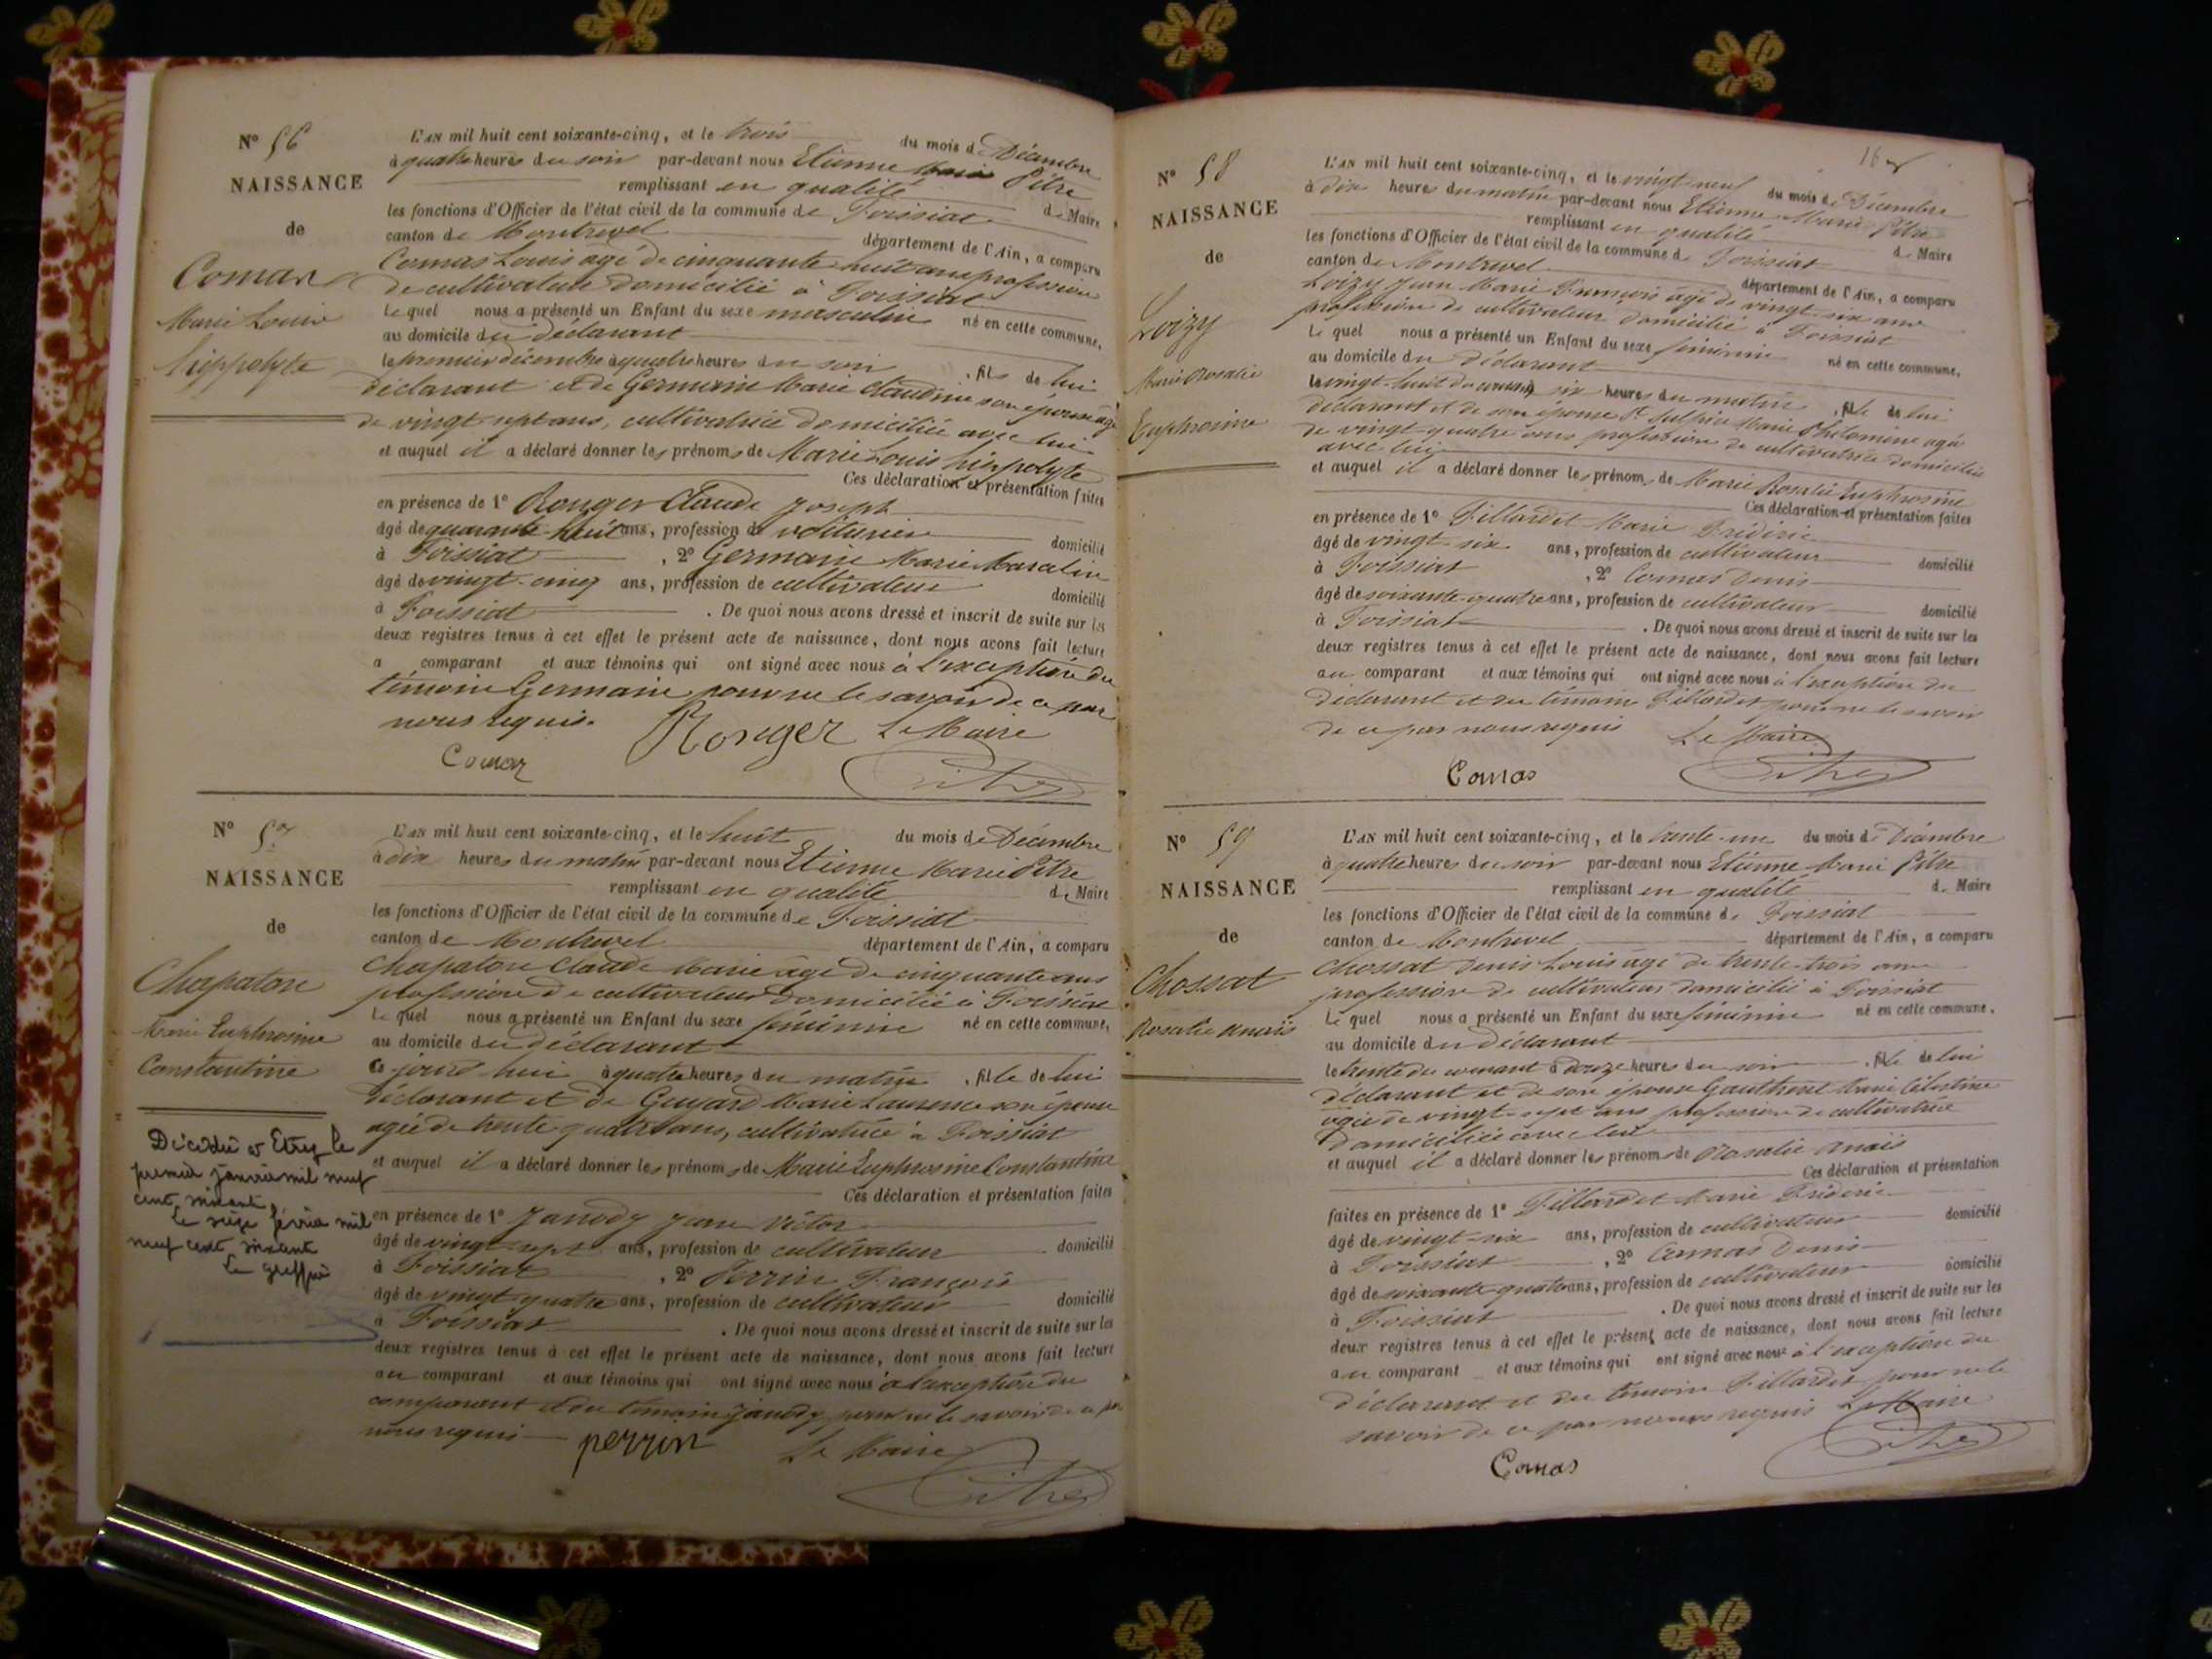 N° 56
NAISSANCE
de
Comas
Marie Louis
hippolyte
L'AN mil huit cent soixante-cinq, et le trois du mois de Décembre
à quatre heures du soir par-devant nous Etienne Marie Pitre
remplissant en qualité de Maire
les fonctions d'Officier de l'état civil de la commune de Foissiat
canton de Montrevel département de l'Ain, a comparu
Comas Louis agé de cinquante huit ans profession
de cultivature domicilié à Foissiat
Le quel nous a présenté un Enfant du sexe masculin né en cette commune,
au domicile du déclarant
le premier décembre à quatre heures du soir , fils de lui
déclarant et de Germain Marie Claudine son épouse âgé
de vingt sept ans, cultivatrice domiciliée avec lui
et auquel il a déclaré donner les prénoms de Marie Louis hippolyte
Ces déclaration et présentation faites
en présence de 1° Rouger Claude Joseph
âgé de quarante huit ans, profession de voiturier domicilié
à Foissiat , 2° Germain Marie
âgé de vingt-cinq ans, profession de cultivateur domicilié
à Foissiat . De quoi nous avons dressé et inscrit de suite sur les
deux registres tenus à cet effet le présent acte de naissance, dont nous avons fait lecture
a comparant et aux témoins qui ont signé avec nous à l'exception du
témoin Germain pour ne le savoir de ce par
nous requis. Rouger Le Maire
Comas Pitre
N° 57
NAISSANCE
de
Chapaton
Marie Euphrosine
Constantine
Décédée à Etrez le
premier janvier mil neuf
cent soixante
Le seize février mil
neuf cent soixante
Le greffier
L'AN mil huit cent soixante-cinq, et le huit du mois de Décembre
à dix heures du matin par-devant nous Etienne Marie Pitre
remplissant en qualité de Maire
les fonctions d'Officier de l'état civil de la commune de Foissiat
canton de Montrevel département de l'Ain, a comparu
Chapaton Claude Marie âgé de cinquante ans
profession de cultivateur domicilié à Foissiat
Le quel nous a présenté un Enfant du sexe féminin né en cette commune,
au domicile du déclarant
Ce jourd'hui à quatre heures du matin , fille de lui
déclarant et de Guyard Marie Laurence son épouse
agée de trente quatre ans, cultivatrice à Foissiat
et auquel il a déclaré donner les prénoms de Marie Euphrosine Constantine
Ces déclaration et présentation faites
en présence de 1° Janody Jean Victor
âgé de vingt-sept ans, profession de cultivateur domicilié
à Foissiat , 2° Perrin François
âgé de vingt quatre ans, profession de cultivateur domicilié
à Foissiat . De quoi nous avons dressé et inscrit de suite sur les
deux registres tenus à cet effet le présent acte de naissance, dont nous avons fait lecture
au comparant et aux témoins qui ont signé avec nous à l'exception du
comparant et du témoin Janody pour ne le savoir de ce par
nous requis perrin Le Maire
Pitre
16
N° 58
NAISSANCE
de
Loizy
Marie Rosalie
Euphrosine
L'AN mil huit cent soixante-cinq, et le vingt neuf du mois de Décembre
à dix heures du matin par-devant nous Etienne Marie Pitre
remplissant en qualité de Maire
les fonctions d'Officier de l'état civil de la commune de Foissiat
canton de Montrevel département de l'Ain, a comparu
Loizy Jean Marie François âgé de vingt-six ans
profession de cultivateur domicilié à Foissiat
Le quel nous a présenté un Enfant du sexe féminin né en cette commune,
au domicile du déclarant
le vingt-huit du courant à six heures du matin , fille de lui
déclarant et de son épouse St Sulpice Marie Philomine agée
de vingt-quatre ans profession de cultivatrice domiciliée
avec lui
et auquel il a déclaré donner les prénoms de Marie Rosalie Euphrosine
Ces déclaration et présentation faites
en présence de 1° Fillardet Marie Fréderic
âgé de vingt-six ans, profession de cultivateur domicilié
à Foissiat , 2° Comas Denis
âgé de soixante-quatre ans, profession de cultivateur domicilié
à Foissiat . De quoi nous avons dressé et inscrit de suite sur les
deux registres tenus à cet effet le présent acte de naissance, dont nous avons fait lecture
au comparant et aux témoins qui ont signé avec nous à l'exception du
déclarant et du témoin Fillardet pour ne le savoir
de ce par nous requis Le Maire
Comas Pitre
N° 59
NAISSANCE
de
Chossat
Rosalie Anaïs
L'AN mil huit cent soixante-cinq, et le trente-un du mois de Décembre
à quatre heures du soir par-devant nous Etienne Marie Pitre
remplissant en qualité de Maire
les fonctions d'Officier de l'état civil de la commune de Foissiat
canton de Montrevel département de l'Ain, a comparu
Chossat Denis Louis âgé de trente-trois ans
profession de cultivateur domicilié à Foissiat
Le quel nous a présenté un Enfant du sexe féminin né en cette commune,
au domicile du déclarant
le trente du courant à douze heures du soir , fille de lui
déclarant et de son épouse Gautheret Marie Célestine
agée de vingt-sept ans profession de cultivatrice
domiciliée avec lui
et auquel il a déclaré donner les prénoms de Rosalie Anaïs
Ces déclaration et présentation
faites en présence de 1° Fillardet Marie Fréderic
âgé de vingt-six ans, profession de cultivateur domicilié
à Foissiat , 2° Comas Denis
âgé de soixante-quatre ans, profession de cultivateur domicilié
à Foissiat . De quoi nous avons dressé et inscrit de suite sur les
deux registres tenus à cet effet le présent acte de naissance, dont nous avons fait lecture
au comparant et aux témoins qui ont signé avec nous à l'exception du
déclarant et du témoin Fillardet pour ne le
savoir de ce par nous requis Le Maire
Comas Pitre